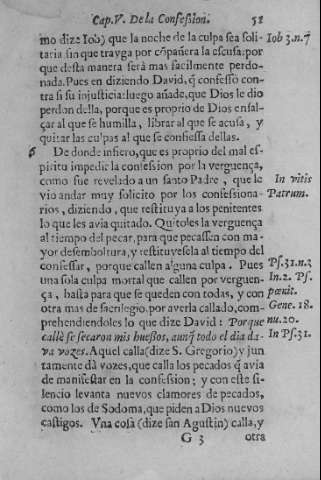 Cap.V. De la Confession. 52
mo dize Iob) que la noche de la culpa sea soli- Iob 3.n.7
taria, sin que trayga por cõpañera la escusa: por
que desta manera será mas facilmente perdo-
nada. Pues en diziendo David, q̃ confessò con-
tra si su injusticia: luego añade, que Dios le dio
perdon della, porque es proprio de Dios ensal-
çar al que se humilla, librar al que se acusa, y
quitar las culpas al que se confiessa dellas.
6 De donde infiero, que es proprio del mal es-
piritu impedir la confession por la verguença,
como fue revelado a un santo Padre, que le In vitis
vio andar muy solicito por los confessiona- Patrum.
rios, diziendo, que restituya a los penitentes
lo que les avia quitado. Quitoles la verguença
al tiempo del pecar, para que pecassen con ma-
yor desemboltura, y restituyesela al tiempo del
confessar, porque callen alguna culpa. Pues Ps.31.n.3
una sola culpa mortal que callen por verguen- In.2. Ps.
ça, basta para que se queden con todas, y con pœnit.
otra mas de sacrilegio, por averla callado, com- Gene. 18.
prehendiendoles lo que dize David: Porque nu.20.
callè se secaron mis huessos, aunq̃ todo el dia da- In Ps.31.
va vozes. Aquel calla (dize S. Gregorio) y jun
tamente dà vozes, que calla los pecados q̃ avia
de manifestar en la confession; y con este si-
lencio levanta nuevos clamores de pecados,
como los de Sodoma, que piden a Dios nuevos
castigos. Vna cosa (dize san Agustin) calla, y
G 3 otra